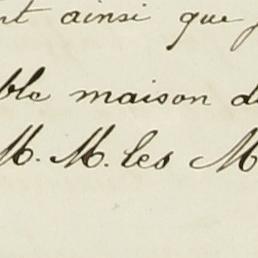 nt ainsi que
ble maison de
M. M. les M